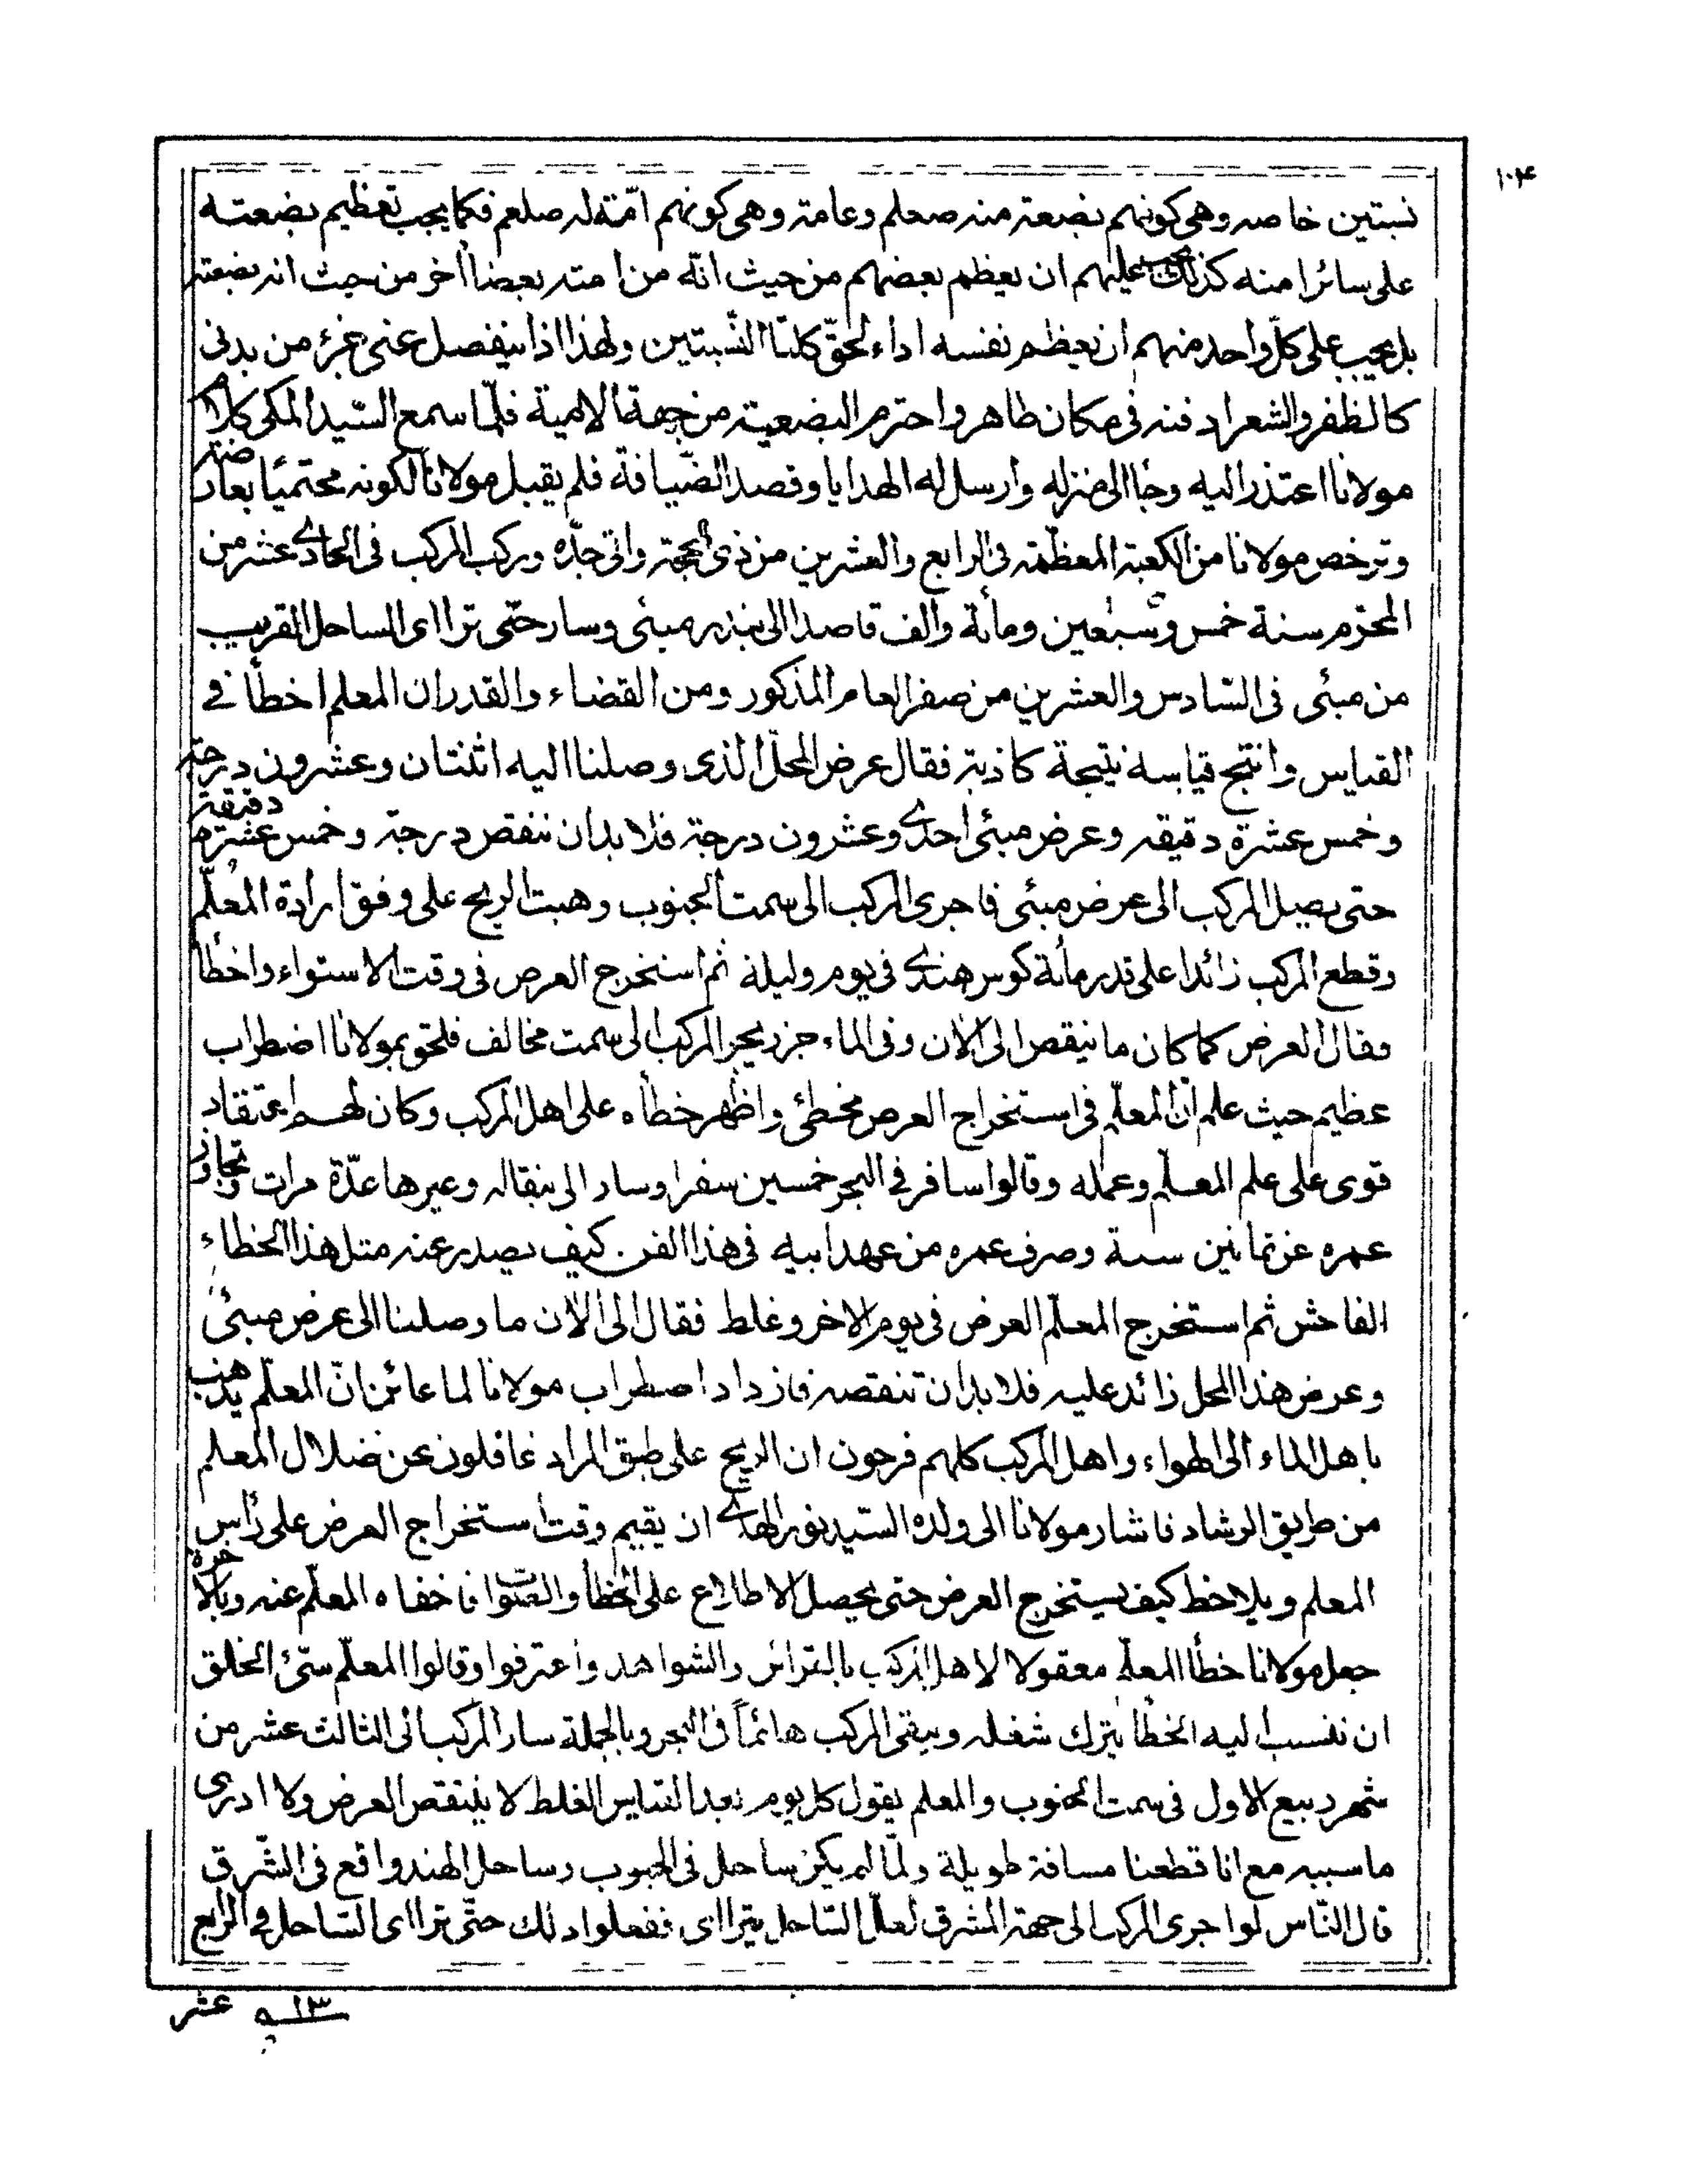 ١٠٤
نسبتين خاصه وهي كونهم بضعته منه صعلم وعامة وهي كونهم امّته له صلعم فكما يجب تعظيم بضعته
على سائر امته كذلك يجب عليهم ان يعظم بعضهم من حيث انّه من امته بعضا أخر من حيث انه بضعته
بل يجب على كلّ واحد منهم ان يعظم نفسه اداء لحقّ كلتا النّسبتين ولهذا اذا ينفصل عني جزء من بدني
كالظفر والشعر ادفنه في مكان طاهر واحترم البضعية من جهة الامية فلمّا سمع السّيد المكي كلام
مولانا اعتذر اليه وجاالى منزله وارسل له الهدايا وقصد الضّيافة فلم يقبل مولانا لكونه محتميًا بعارضته
وترخص مولانا من الكعبة المعظمة في الرابع والعشرين من ذي الحجة واتى جدّه وركب المركب في الحادي عشر من
المحرم سنة خمس وسبعين ومائة والف قاصدا الى بندر مبئى وسار حتّى تراأى الساحل القريب
من مبئى فى السّادس والعشرين من صفر العام المذكور ومن القضاء والقدر ان المعلم اخطأ في
القياس وانتج قياسه نتيجة كاذبة فقال عرض المحلّ الذى وصلنا اليه اثنتان وعشرون درجة
وخمس عشرة دقيقه وعرض مبئى احدى وعشرون درجة فلا بد ان ننقص درجة وخمس عشرة دقيقة
حتى يصيل المركب الى عرض مبئى فاجرى المركب الى سمت الجنوب وهبت الريح على وفق ارادة المُعلّم
وقطع المركب زائدا على قدر مائة كوس هندى في يوم وليلة ثم استخرج العرض فى وقت الاستواء واخطأ
وقال العرض كما كان ما نيقص الى الأن وفى الماء جزر يجر المركب الى سمت مخالف فلحق بمولانا اضطراب
عظيم حيث علم انّ المعلّم فى استخراج العرض مخطئ واظهر خطأه على اهل المركب وكان لهم اعتقاد
قوى على علم المعلّم وعمله وقالوا سافر في البحر خمسين سفرا وساد الى بنقاله وغيرها عدّة مرات وتجاوز
عمره عن ثمانين سنة وصرف عمره من عهد ابيه فى هذا الفن. كيف يصدر عنه مثل هذا الخطاء
الفاحش ثم استخرج المعلّم العرض فى يوم الاخر وغلط فقال الى الأن ما وصلنا الى عرض مبئى
وعرض هذا المحل زائد عليه فلا بد ان تنقصه فازداد اضطراب مولانا لما عائن انّ المعلّم يذهب
باهل الماء الى الهواء واهل المركب كلهم فرحون ان الريح على طبق المراد غافلون عن ضلال المعلم
من طريق الرشاد فاشار مولانا الى ولده السّيد نور الهدى ان يقيم وقت استخراج العرض على رأس
المعلم ويلاخط كيف يستخرج العرض حتى يحصل الاطلاع على الخطأ والصواب فاخفاه المعلّم عنه وبالاخرة
جعل مولانا خطأ المعلّم معقولا لاهل المركب بالقرائن والشواهد واعترفوا وقالوا المعلّم سئ الخلق
ان ننسب اليه الخطأ يترك شغله ويبقى المركب هائماً فى البحر وبالجملة سار المركب الى الثالث عشر من
شهر ربيع الاول فى سمت الجنوب والمعلم يقول كل يوم بعد القياس الغلط لا ينتقص العرض ولا ادرى
ما سببه مع انا قطعنا مسافة طويلة ولمّا لم يكن ساحل فى الجنوب وساحل الهند واقع فى الشّرق
قال النّاس لو اجرى المركب الى جهة المشرق لعلّ السّاحل يتراأى ففعلوا ذلك حتّى تراأى السّاحل في الرابع
عشر